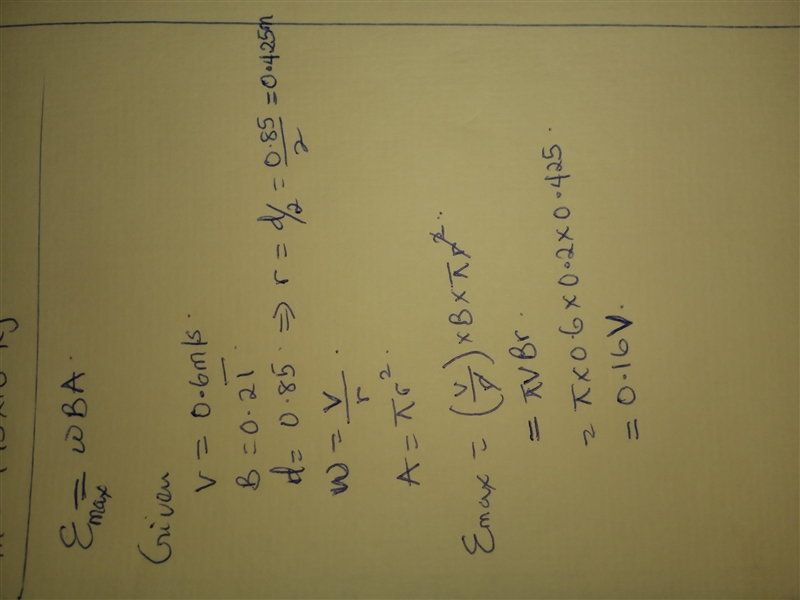 Ɛmax = ωBA.
Given
V = 0.6m/s.
B = 0.2T
d = 0.85. ⇒ r = d/2 = 0.85/2 = 0.425m
W = V/r.
A = πr².
Ɛmax = (V/r) × B × πr².
= πVBr.
= π×0.6×0.2×0.425.
= 0.16V.